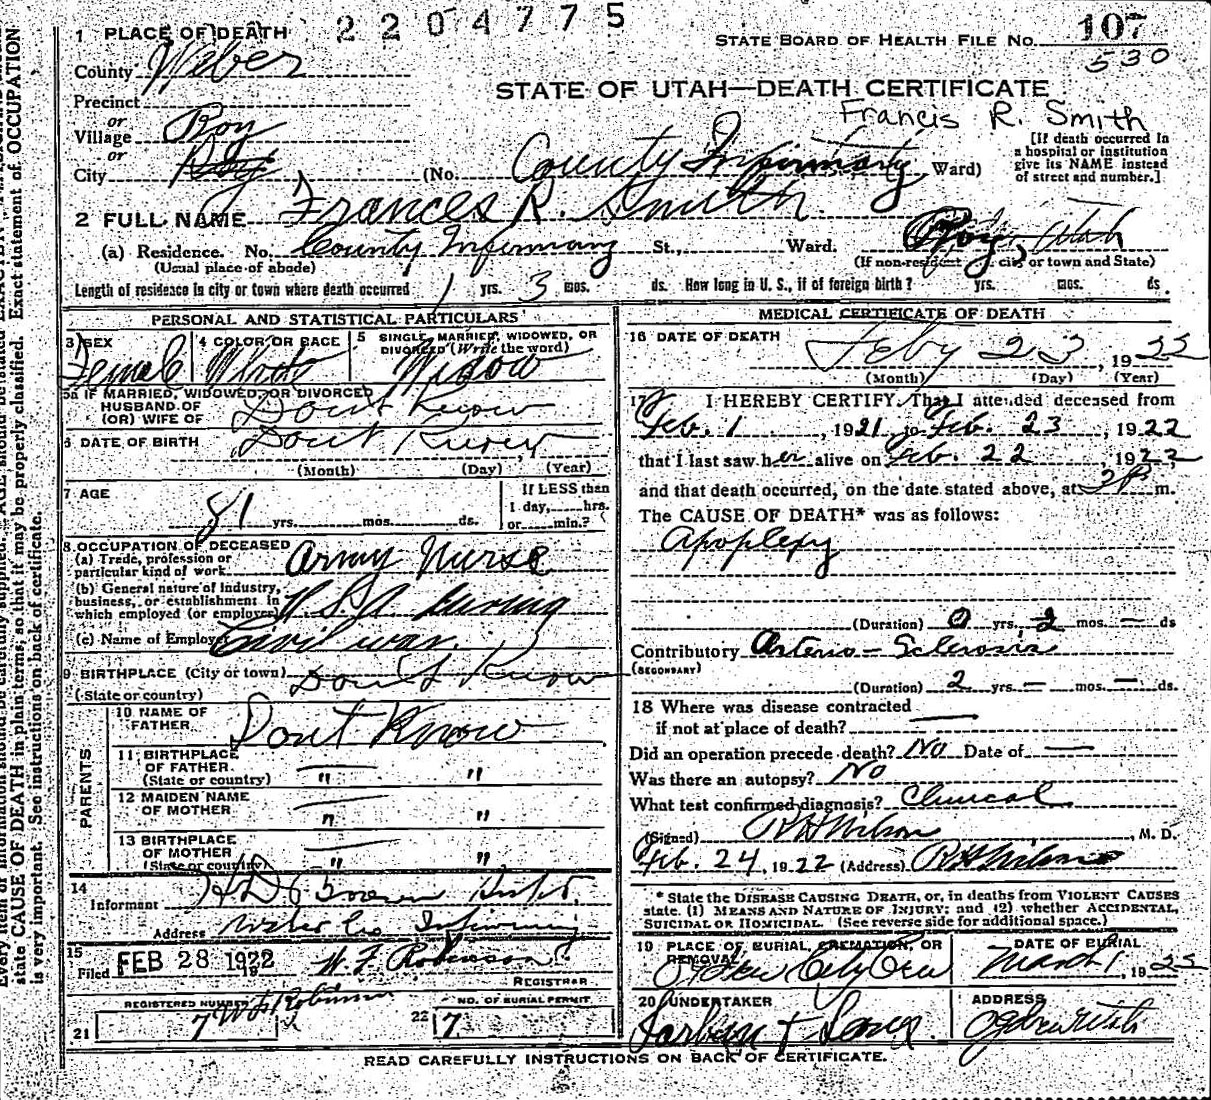 2204775
1 PLACE OF DEATH
STATE BOARD OF HEALTH FILE No. 107
530
County Weber
STATE OF UTAH—DEATH CERTIFICATE
Precinct
or
Francis R. Smith
Village Roy
or
City Roy (No. County Infirmary Ward)
[If death occurred in
a hospital or institution
give its NAME instead
of street and number.]
2 FULL NAME Frances R. Smith
(a) Residence. No. County Infirmary St., Ward. Roy, Utah
(Usual place of abode) (If non-resident city or town and State)
Length of residence in city or town where death occurred 1 yrs. 3 mos. ds. How long in U. S., if of foreign birth? yrs. mos. ds.
PERSONAL AND STATISTICAL PARTICULARS
3 SEX Female
4 COLOR OR RACE White
5 SINGLE, MARRIED, WIDOWED, OR
DIVORCED (Write the word)
Widow
5a IF MARRIED, WIDOWED, OR DIVORCED
HUSBAND OF
(OR) WIFE OF Dont Know
6 DATE OF BIRTH Dont Know
(Month) (Day) (Year)
7 AGE
81 yrs. mos. ds.
If LESS than
1 day, hrs.
or min.?
8 OCCUPATION OF DECEASED
(a) Trade, profession or
particular kind of work Army Nurse
(b) General nature of industry,
business, or establishment in
which employed (or employer) U.S.A. During
(c) Name of Employer Civil War.
9 BIRTHPLACE (City or town) Don't Know
(State or country)
PARENTS
10 NAME OF
FATHER Dont Know
11 BIRTHPLACE
OF FATHER
(State or country) " "
12 MAIDEN NAME
OF MOTHER " "
13 BIRTHPLACE
OF MOTHER
(State or country) " "
14
Informant
Address Weber Co Infirmary
15
Filed FEB 28 1922 W. F. Robinson
REGISTRAR
REGISTERED NUMBER
21 7
NO. OF BURIAL PERMIT
22 7
MEDICAL CERTIFICATE OF DEATH
16 DATE OF DEATH
Feby 23, 1922
(Month) (Day) (Year)
17 I HEREBY CERTIFY, That I attended deceased from
Feb. 1, 1921 to Feb. 23, 1922
that I last saw her alive on Feb. 22 1922
and that death occurred, on the date stated above, at 2 P m.
The CAUSE OF DEATH* was as follows:
Apoplexy
(Duration) 0 yrs. 2 mos. — ds
Contributory Arterio-Sclerosis
(SECONDARY)
(Duration) 2 yrs. — mos. — ds.
18 Where was disease contracted
if not at place of death? —
Did an operation precede death? No Date of —
Was there an autopsy? No
What test confirmed diagnosis? Clinical
(Signed) R H Wilson, M. D.
Feb. 24, 1922 (Address) R H Wilson
* State the DISEASE CAUSING DEATH, or, in deaths from VIOLENT CAUSES
state. (1) MEANS AND NATURE OF INJURY; and (2) whether ACCIDENTAL,
SUICIDAL OR HOMICIDAL. (See reverse side for additional space.)
19 PLACE OF BURIAL, CREMATION, OR
REMOVAL
Ogden City Cem
DATE OF BURIAL
March 1, 1922
20 UNDERTAKER
Larkin & Sons
ADDRESS
Ogden Utah
READ CAREFULLY INSTRUCTIONS ON BACK OF CERTIFICATE.
state CAUSE OF DEATH in plain terms, so that it may be properly classified. Exact statement of OCCUPATION
is very important. See instructions on back of certificate.